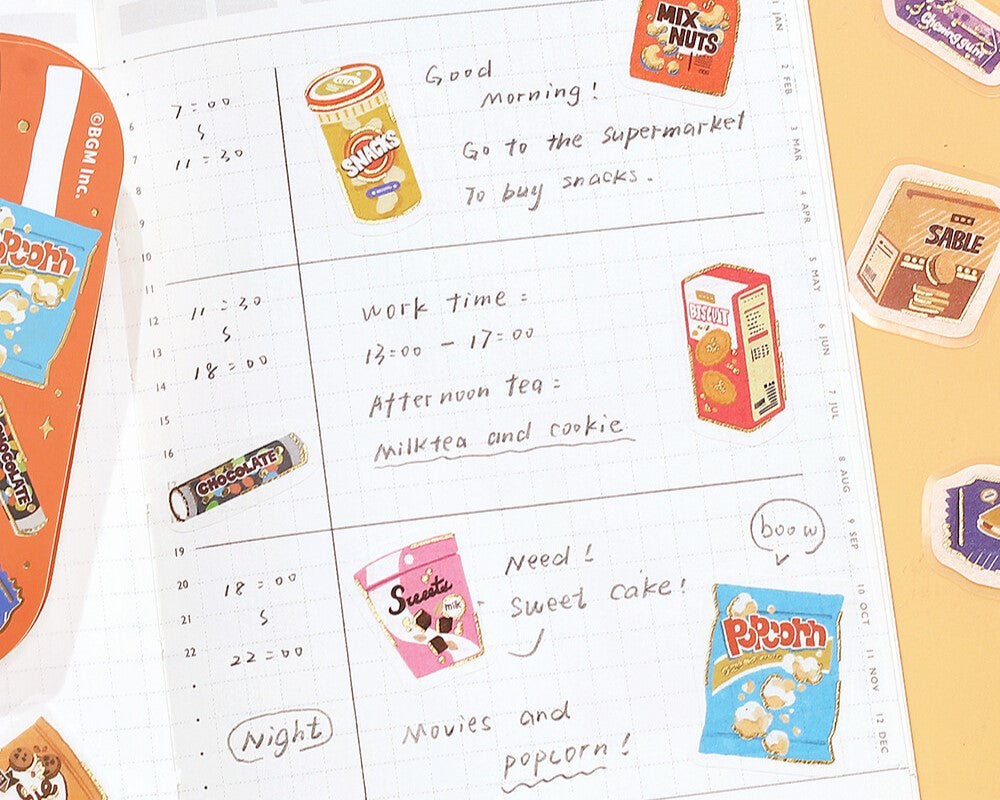 ©BGM Inc.
Popcorn
CHOCOLATE
6
7
8
9
10
11
12
13
14
15
16
19
20
21
22
7:00
S
11:30
SNACKS
Good
Morning!
Go to the supermarket
To buy snacks.
MIX
NUTS
11:30
S
18:00
CHOCOLATE
Work time:
13:00 - 17:00
Afternoon tea:
Milktea and cookie
BISCUIT
18:00
S
22:00
Night
Sweets
milk
Need!
Sweet cake!
boow
Popcorn
Movies and
popcorn!
1 JAN
2 FEB
3 MAR
4 APR
5 MAY
6 JUN
7 JUL
8 AUG
9 SEP
10 OCT
11 NOV
12 DEC
Chewing gum
SABLE